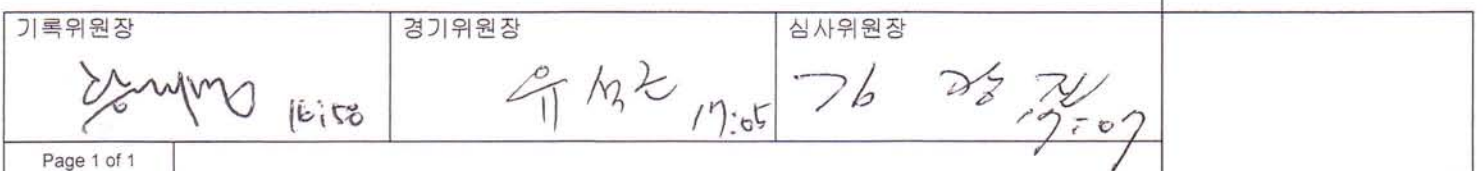 기록위원장 경기위원장 심사위원장
16:50 유 17:05 김 17:07
Page 1 of 1